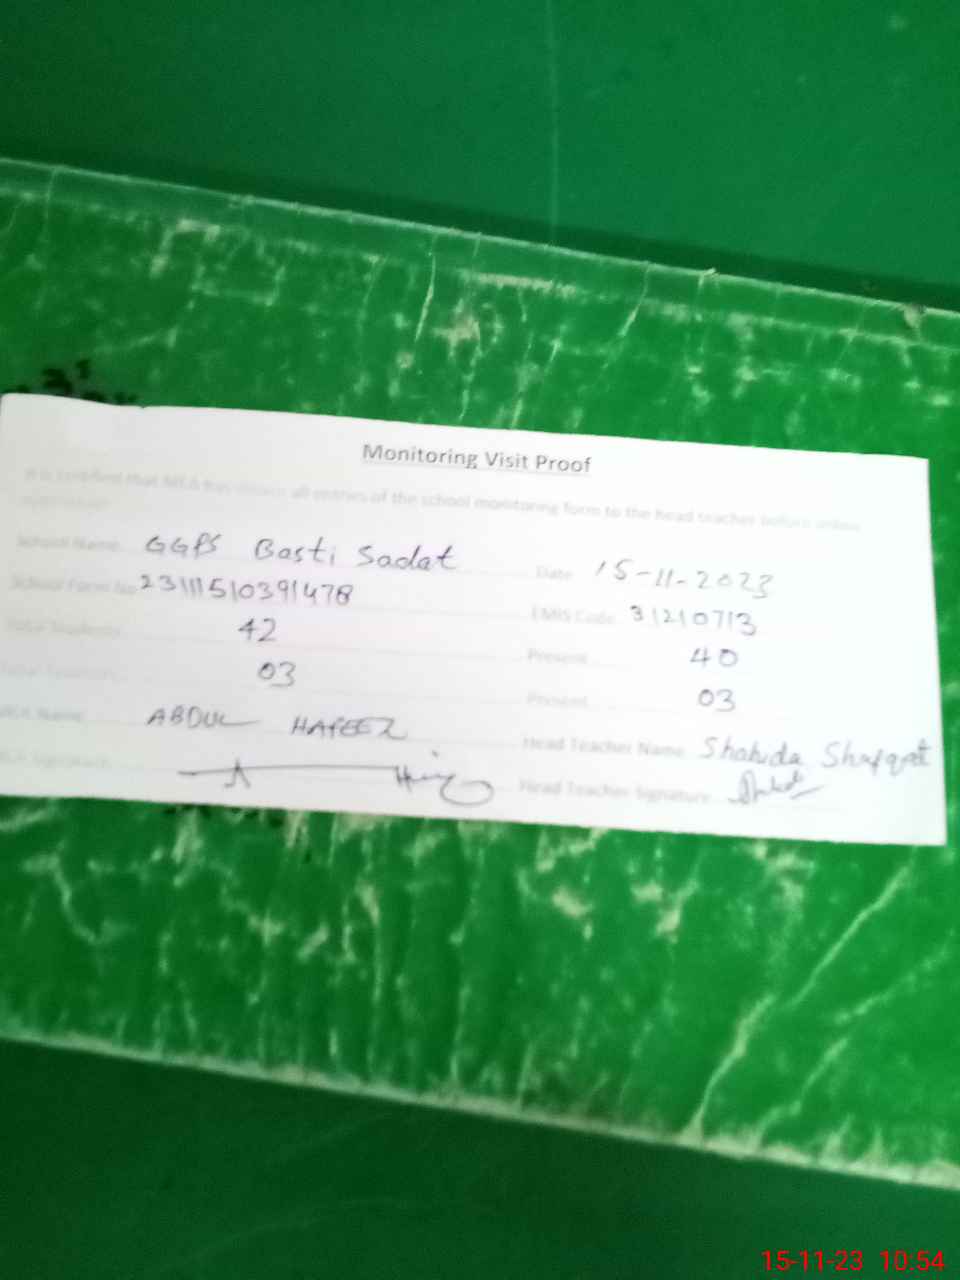 Monitoring Visit Proof
It is certified that MEA has shown all entries of the school monitoring form to the head teacher before online
submission
School Name GGPS Basti Sadat Date 15-11-2023
School Form No 23111510391478 EMIS Code 31210713
Total Students 42 Present 40
Total Teachers 03 Present 03
MEA Name ABDUL HAFEEZ Head Teacher Name Shahida Shafqat
MEA Signature Head Teacher Signature
15-11-23 10:54